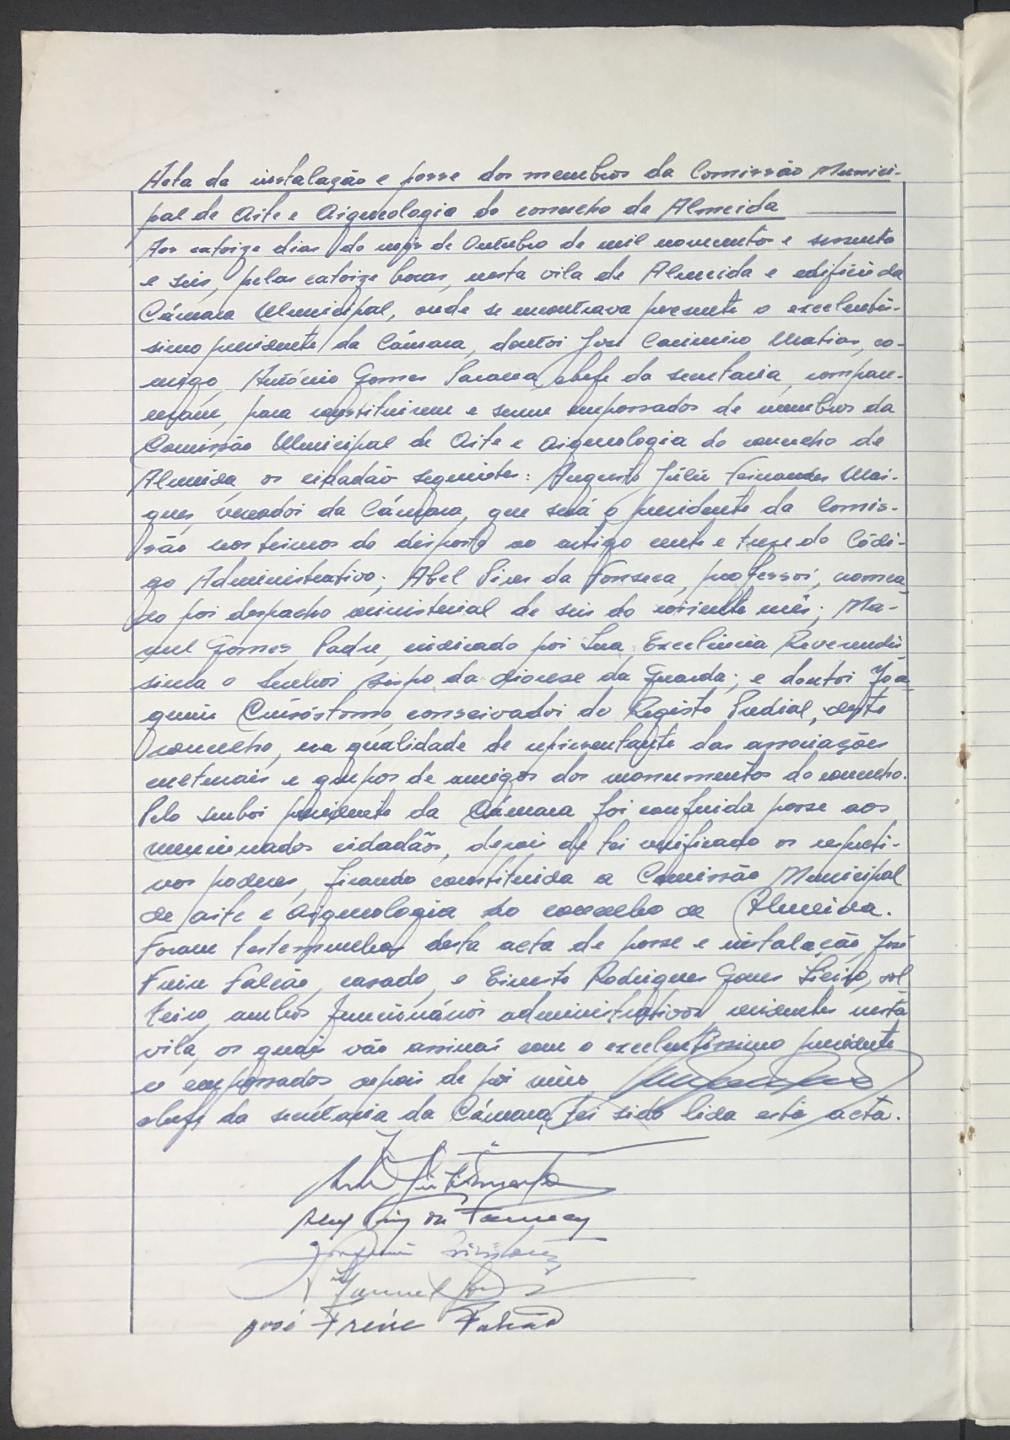 Acta da instalação e posse dos membros da Comissão Munici-
pal de Arte e Arqueologia do concelho de Almeida
Aos catorze dias do mês de Outubro de mil novecentos e sessenta
e seis, pelas catorze horas, nesta vila de Almeida e edifício da
Câmara Municipal, onde se encontrava presente o excelentís-
simo presidente da Câmara, doutor José Casimiro Matias, co-
migo, António Gomes Saraiva, chefe da secretaria, compare-
ceram, para constituirem e serem empossados de membros da
Comissão Municipal de Arte e Arqueologia do concelho de
Almeida, os cidadãos seguintes: Augusto Júlio Fernandes Mar-
ques, vereador da Câmara, que será o presidente da Comis-
são nos termos do disposto no artigo cento e treze do Códi-
go Administrativo; Abel Pires da Fonseca, professor, nomea
do por despacho ministerial de seis do corrente mês; Ma-
nuel Gomes, Padre, indicado por Sua Excelência Reverendís
sima o Senhor Bispo da diocese da Guarda; e doutor Joa
quim Crisóstomo, conservador do Registo Predial, deste
concelho, na qualidade de representante das associações
culturais e grupos de amigos dos monumentos do concelho.
Pelo senhor presidente da Câmara foi conferida posse aos
mencionados cidadãos, depois de ter verificado os respecti-
vos poderes, ficando constituida a Comissão Municipal
de arte e Arqueologia do concelho de Almeida.
Foram testemunhas desta acta de posse e instalação, José
Freire Falcão, casado, e Ernesto Rodrigues Gomes, sol
teiro, ambos funcionários administrativos residentes nesta
vila, os quais vão assinar com o excelentíssimo presidente
e empossados depois de por mim
chefe da secretaria da Câmara, ter sido lida esta acta.
Abel Pires da Fonseca
Joaquim Crisóstomo
Manuel
José Freire Falcão